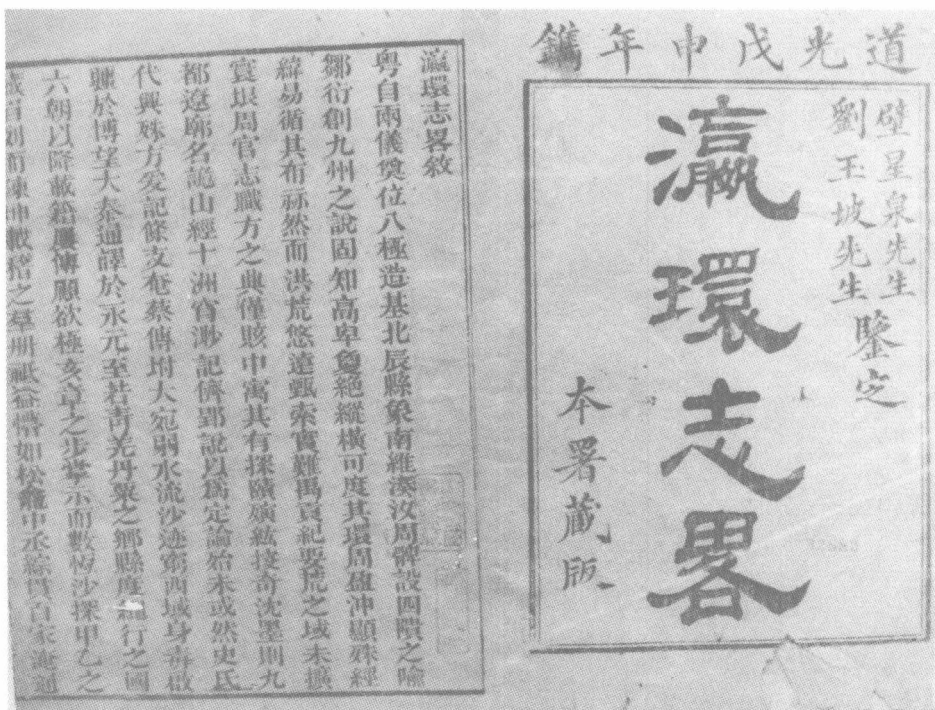 道光戊申年鐫
壁星泉先生
劉玉坡先生
鑒定
瀛環志畧
本署藏版
瀛環志畧敘
粵自兩儀奠位八極造基北辰縣象南維湊汝周髀設四隤之喻
鄒衍創九州之說固知高卑敻絕縱橫可度其環周盈沖顯殊經
緯易循其布祘然而洪荒悠遠甄索實難禹貢紀要荒之域未擴
寰垠周官志職方之典僅賅中寓其有探賾演紘接奇沈墨則九
都遼廓名詭山經十洲窅渺記儕郢說以為定論始未或然史氏
代興殊方爰記條支奄蔡傳坿大宛弱水流沙迹窮西域身毒啟
疆於博望大秦通譯於永元至若靑羌丹粟之鄉縣度繩行之國
六朝以降載籍屢傳顧欲極亥章之步掌示而數恆沙採甲乙之
如松龕中丞綜貫百家淹通